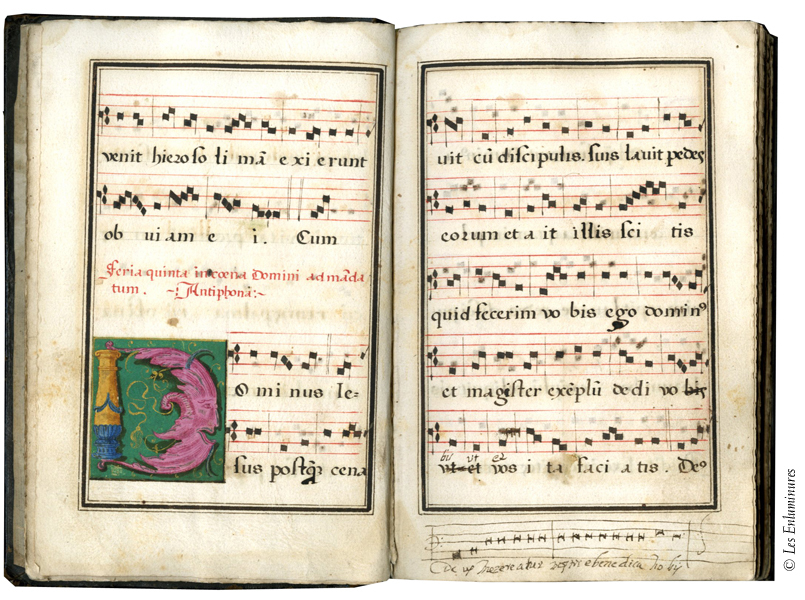 venit hieroso li mā e xi e runt
ob vi am e i. Cum
Feria quinta in cœna Domini ad māda
tum. Antiphona:
D O mi nus Ie-
sus postq̄ cena
vit cū disci pulis. suis lavit pedes
eorum et a it illis sci tis
quid fecerim vo bis ego domin⁹
et magister exēplū de di vo bis
bis vt et
vt et vos i ta faci a tis. De⁹
© Les Enluminures